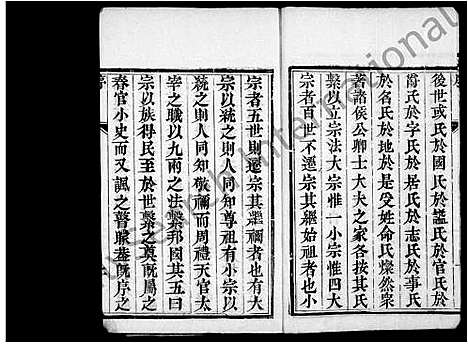 後世或氏於國氏於謚氏於官氏於
爵氏於字氏於居氏於志氏於事氏
於名氏於地於是受姓命氏燦然衆
著諸侯公卿士大夫之家各按其氏
繫以立宗法大宗惟一小宗惟四大
宗者百世不遷宗其繼始祖者也小
宗者五世則遷宗其繼禰者也有大
宗以統之則人同知尊祖有小宗以
統之則人同知敬禰而周禮天官太
宰之職以九兩之法繫邦國其五曰
宗以族得民至於世繫之奠既屬之
春官小史而又諷之瞽矇葢既序之
序
earch International